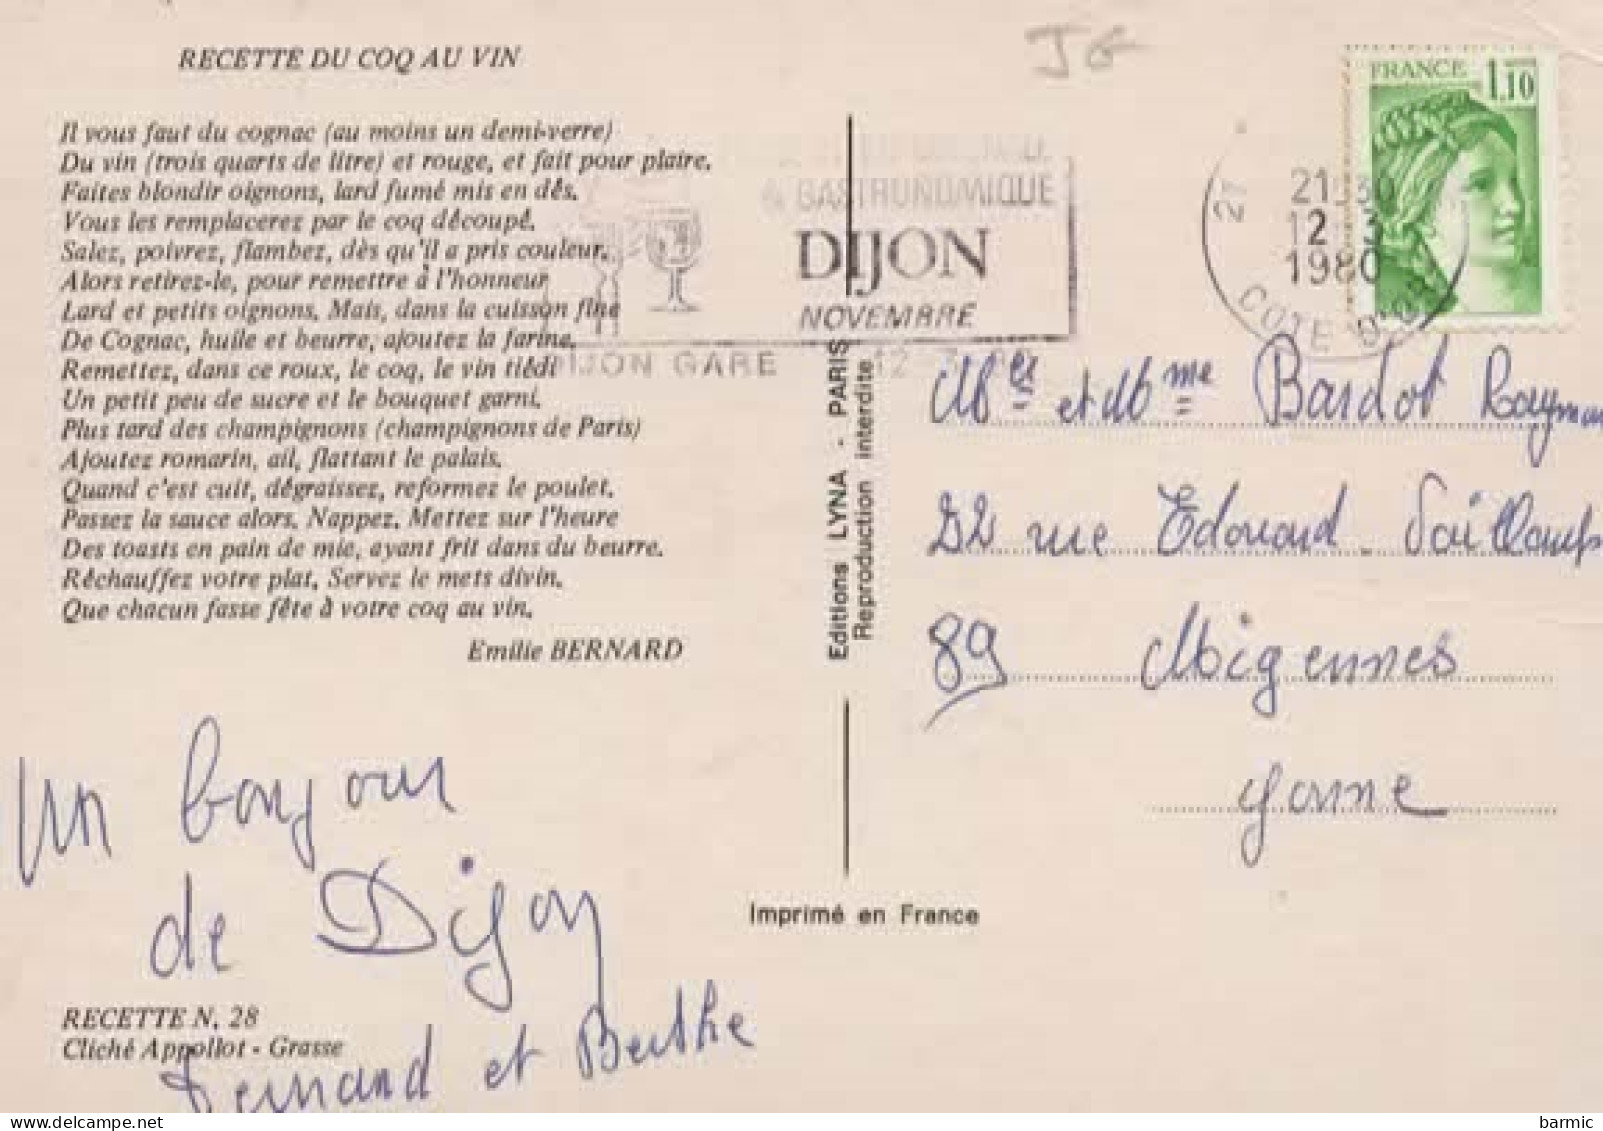 RECETTE DU COQ AU VIN
Il vous faut du cognac (au moins un demi-verre)
Du vin (trois quarts de litre) et rouge, et fait pour plaire.
Faites blondir oignons, lard fumé mis en dés.
Vous les remplacerez par le coq découpé.
Salez, poivrez, flambez, dès qu'il a pris couleur.
Alors retirez-le, pour remettre à l'honneur
Lard et petits oignons. Mais, dans la cuisson fine
De Cognac, huile et beurre, ajoutez la farine.
Remettez, dans ce roux, le coq, le vin tiédi
Un petit peu de sucre et le bouquet garni.
Plus tard des champignons (champignons de Paris)
Ajoutez romarin, ail, flattant le palais.
Quand c'est cuit, dégraissez, reformez le poulet.
Passez la sauce alors. Nappez. Mettez sur l'heure
Des toasts en pain de mie, ayant frit dans du beurre.
Réchauffez votre plat. Servez le mets divin.
Que chacun fasse fête à votre coq au vin.
Emilie BERNARD
Un bonjour
de Dijon
RECETTE N. 28
Cliché Appollot - Grasse
Fernand et Berthe
Editions LYNA - PARIS
Reproduction interdite
Imprimé en France
J G
& GASTRONOMIQUE
DIJON
NOVEMBRE
DIJON GARE
FRANCE 1,10
21
12
1980
COTE D'OR
Mr et Mme Bardot
22 rue Edouard
89 Migennes
Yonne
barmic